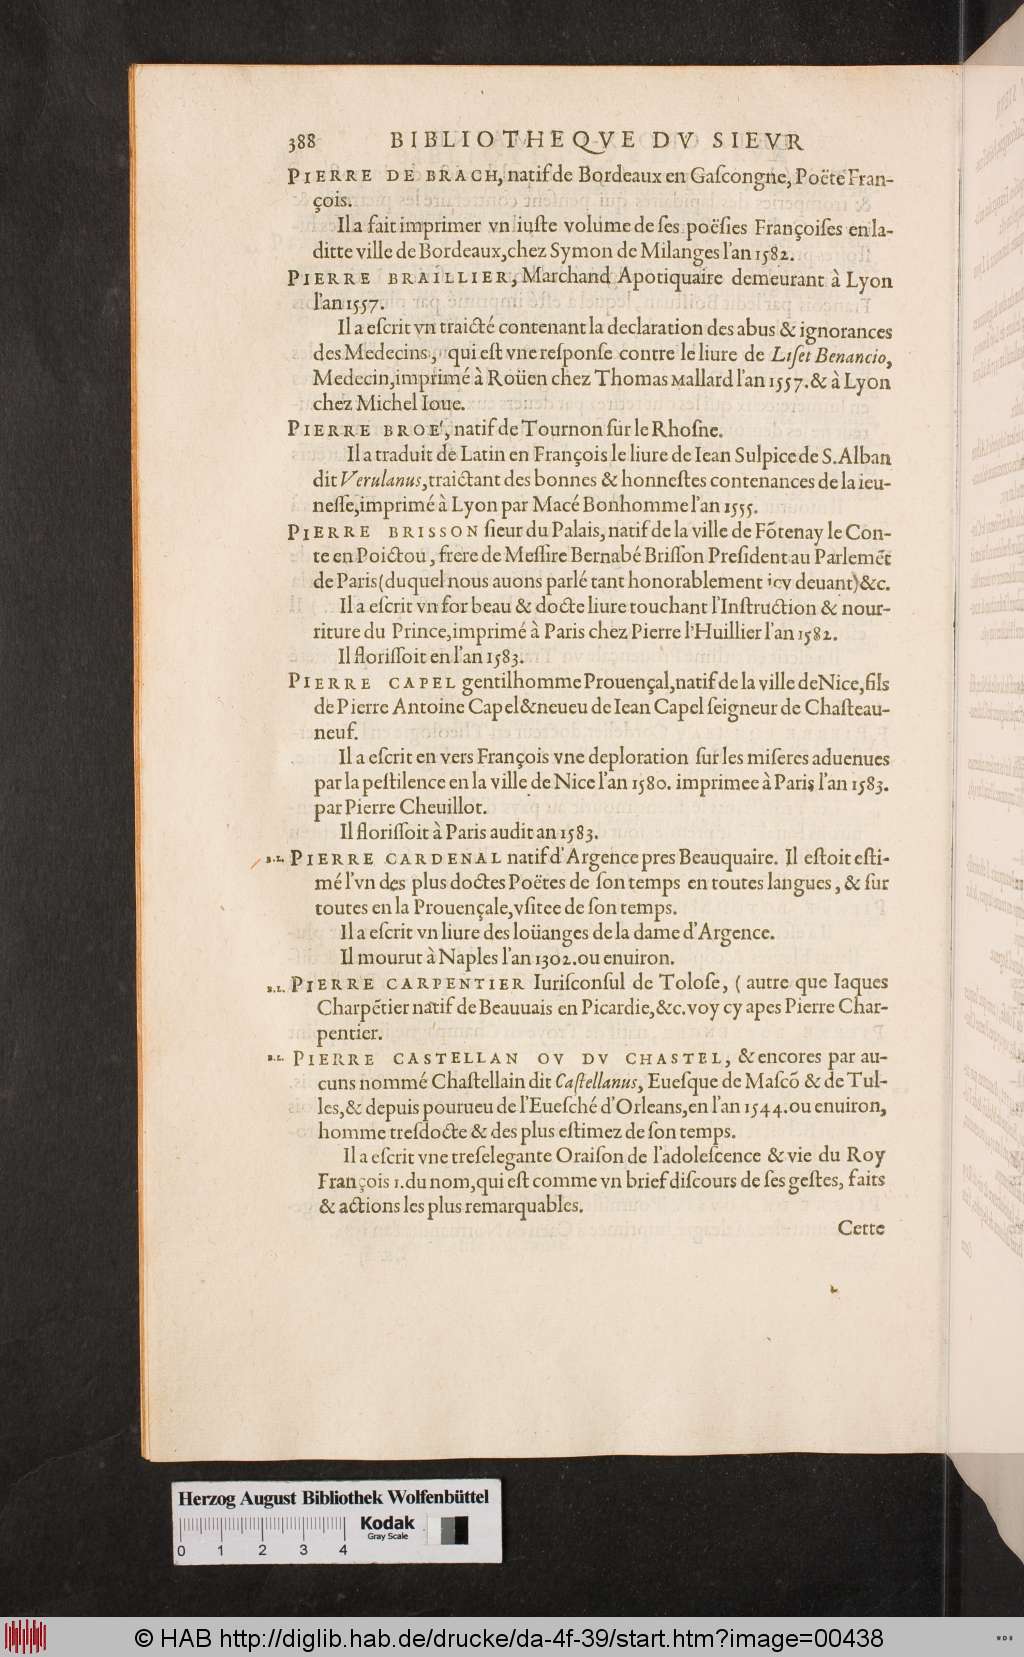 388 BIBLIOTHEQVE DV SIEVR
PIERRE DE BRACH, natif de Bordeaux en Gaſcongne, Poëte Fran-
çois.
Il a fait imprimer vn iuſte volume de ſes poëſies Françoiſes en la-
ditte ville de Bordeaux, chez Symon de Milanges l'an 1582.
PIERRE BRAILLIER, Marchand Apotiquaire demeurant à Lyon
l'an 1557.
Il a eſcrit vn traicté contenant la declaration des abus & ignorances
des Medecins, qui eſt vne reſponſe contre le liure de Liſet Benancio,
Medecin, imprimé à Roüen chez Thomas Mallard l'an 1557. & à Lyon
chez Michel Ioue.
PIERRE BROE', natif de Tournon ſur le Rhoſne.
Il a traduit de Latin en François le liure de Iean Sulpice de S. Alban
dit Verulanus, traictant des bonnes & honneſtes contenances de la ieu-
neſſe, imprimé à Lyon par Macé Bonhomme l'an 1555.
PIERRE BRISSON ſieur du Palais, natif de la ville de Fõtenay le Con-
te en Poictou, frere de Meſſire Bernabé Briſſon Preſident au Parlemẽt
de Paris (duquel nous auons parlé tant honorablement icy deuant) &c.
Il a eſcrit vn for beau & docte liure touchant l'Inſtruction & nour-
riture du Prince, imprimé à Paris chez Pierre l'Huillier l'an 1582.
Il floriſſoit en l'an 1583.
PIERRE CAPEL gentilhomme Prouençal, natif de la ville de Nice, fils
de Pierre Antoine Capel & neueu de Iean Capel ſeigneur de Chaſteau-
neuf.
Il a eſcrit en vers François vne deploration ſur les miſeres aduenues
par la peſtilence en la ville de Nice l'an 1580. imprimee à Paris l'an 1583.
par Pierre Cheuillot.
Il floriſſoit à Paris audit an 1583.
B.L. PIERRE CARDENAL natif d'Argence pres Beauquaire. Il eſtoit eſti-
mé l'vn des plus doctes Poëtes de ſon temps en toutes langues, & ſur
toutes en la Prouençale, vſitee de ſon temps.
Il a eſcrit vn liure des loüanges de la dame d'Argence.
Il mourut à Naples l'an 1302. ou enuiron.
B.L. PIERRE CARPENTIER Iuriſconſul de Toloſe, (autre que Iaques
Charpẽtier natif de Beauuais en Picardie, &c. voy cy apes Pierre Char-
pentier.
B.L. PIERRE CASTELLAN OV DV CHASTEL, & encores par au-
cuns nommé Chaſtellain dit Caſtellanus, Eueſque de Maſcõ & de Tul-
les, & depuis pourueu de l'Eueſché d'Orleans, en l'an 1544. ou enuiron,
homme treſdocte & des plus eſtimez de ſon temps.
Il a eſcrit vne treſelegante Oraiſon de l'adoleſcence & vie du Roy
François 1. du nom, qui eſt comme vn brief diſcours de ſes geſtes, faits
& actions les plus remarquables.
Cette
Herzog August Bibliothek Wolfenbüttel
Kodak
Gray Scale
0 1 2 3 4
© HAB http://diglib.hab.de/drucke/da-4f-39/start.htm?image=00438